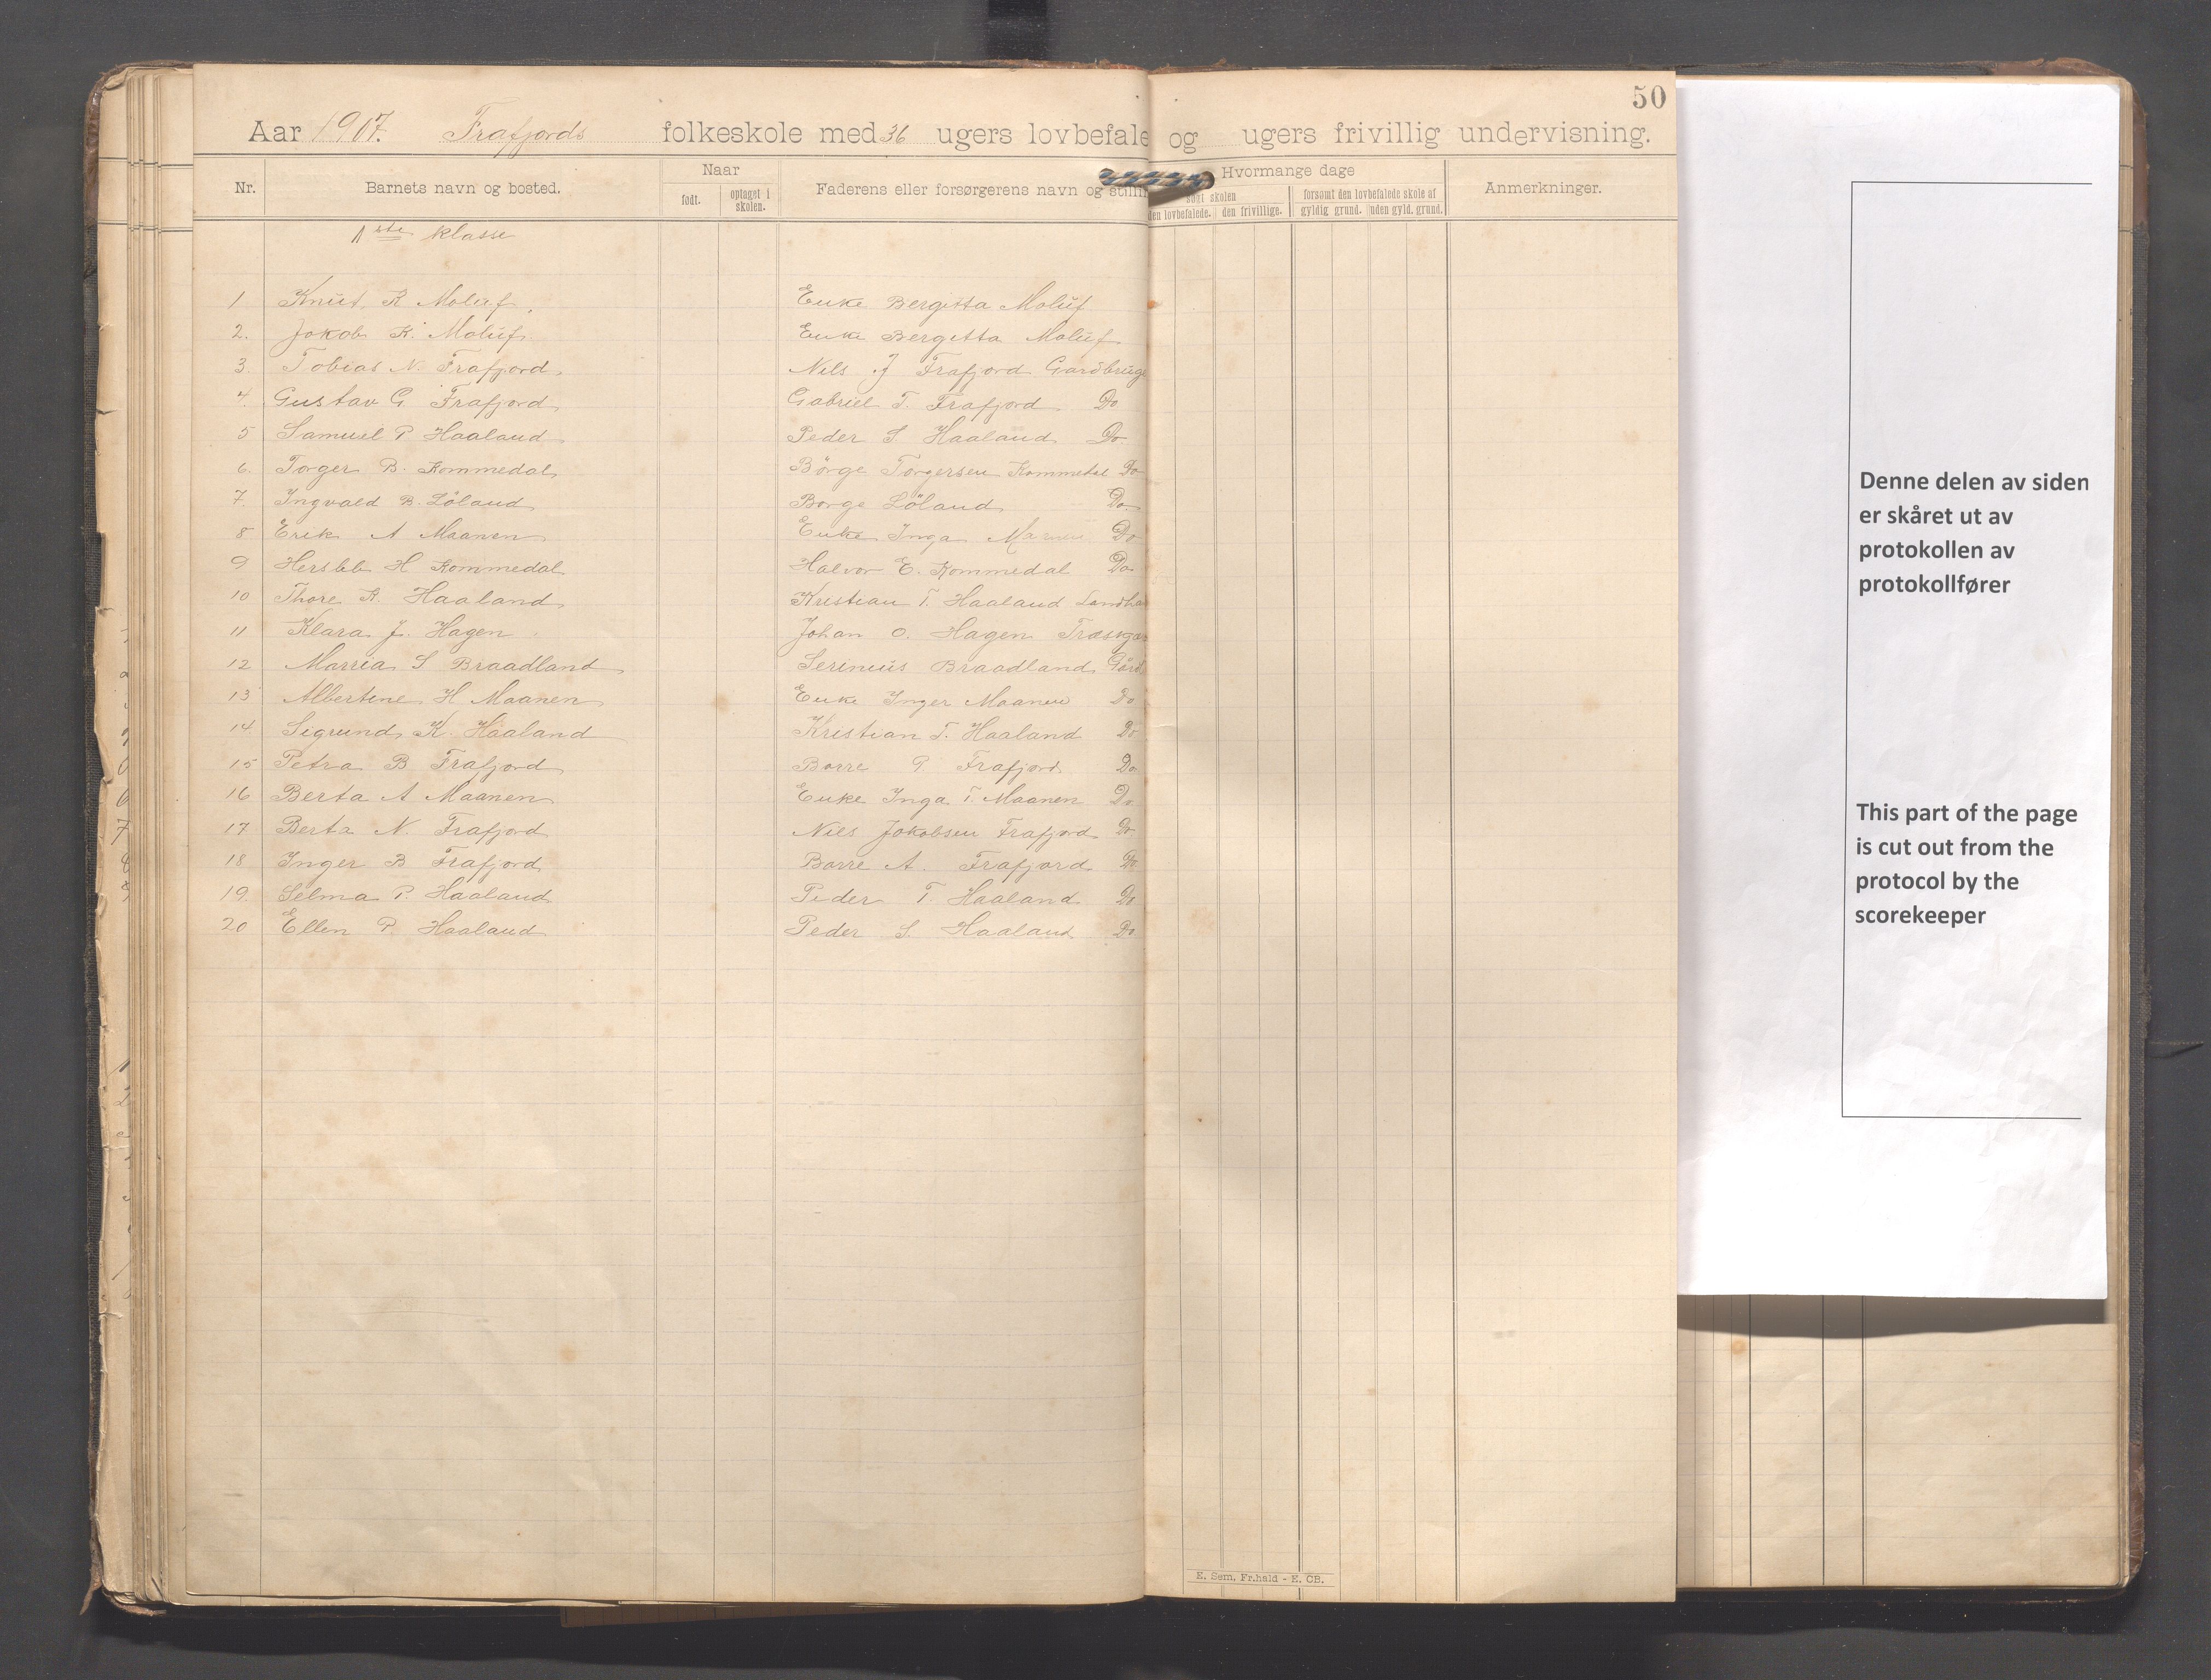 50
Aar 1907. Frafjords folkeskole med 36 ugers lovbefale og ugers frivillig undervisning.
Nr. Barnets navn og bosted. Naar født. optaget i skolen. Faderens eller forsørgerens navn og stillin Hvormange dage søgt skolen den lovbefalede. den frivillige. forsømt den lovbefalede skole af gyldig grund. uden gyld. grund. Anmerkninger.
1ste klasse
1 Knut K Moluf. Enke Bergitta Moluf
2. Jokob K. Moluf. Enke Bergitta Moluf
3. Tobias N. Frafjord. Nils J Frafjord Gardbruge
4. Gustav G. Frafjord Gabriel T. Frafjord Do
5 Samuel P Haaland Peder S. Haaland Do
6. Torger B. Kommedal Børge Torgersen Kommedal Do
7. Ingvald B. Löland Borge Löland Do
8 Erik A Maanen Enke Inga Do
9 Hersleb H Kommedal Halvor E. Kommedal Do
10 Thore K. Haaland Kristian T. Haaland Landha
11 Klara J. Hagen Johan O. Hagen
12 Marria S Braadland Serinius Braadland
13 Albertine H Maanen Enke Inger Maanen Do
14 Sigrund K. Haaland Kristian T. Haaland Do
15 Petra B Frafjord Borre P. Frafjord Do
16 Berta A Maanen Enke Inga T. Maanen Do
17 Berta N. Frafjord Nils Jokobsen Frafjord Do
18 Inger B Frafjord Borre A. Frafjord Do
19. Selma P. Haaland Peder T. Haaland Do
20 Ellen P. Haaland Peder S. Haaland Do
E. Sem, Fr.hald - E. CB.
Denne delen av siden
er skåret ut av
protokollen av
protokollfører
This part of the page
is cut out from the
protocol by the
scorekeeper